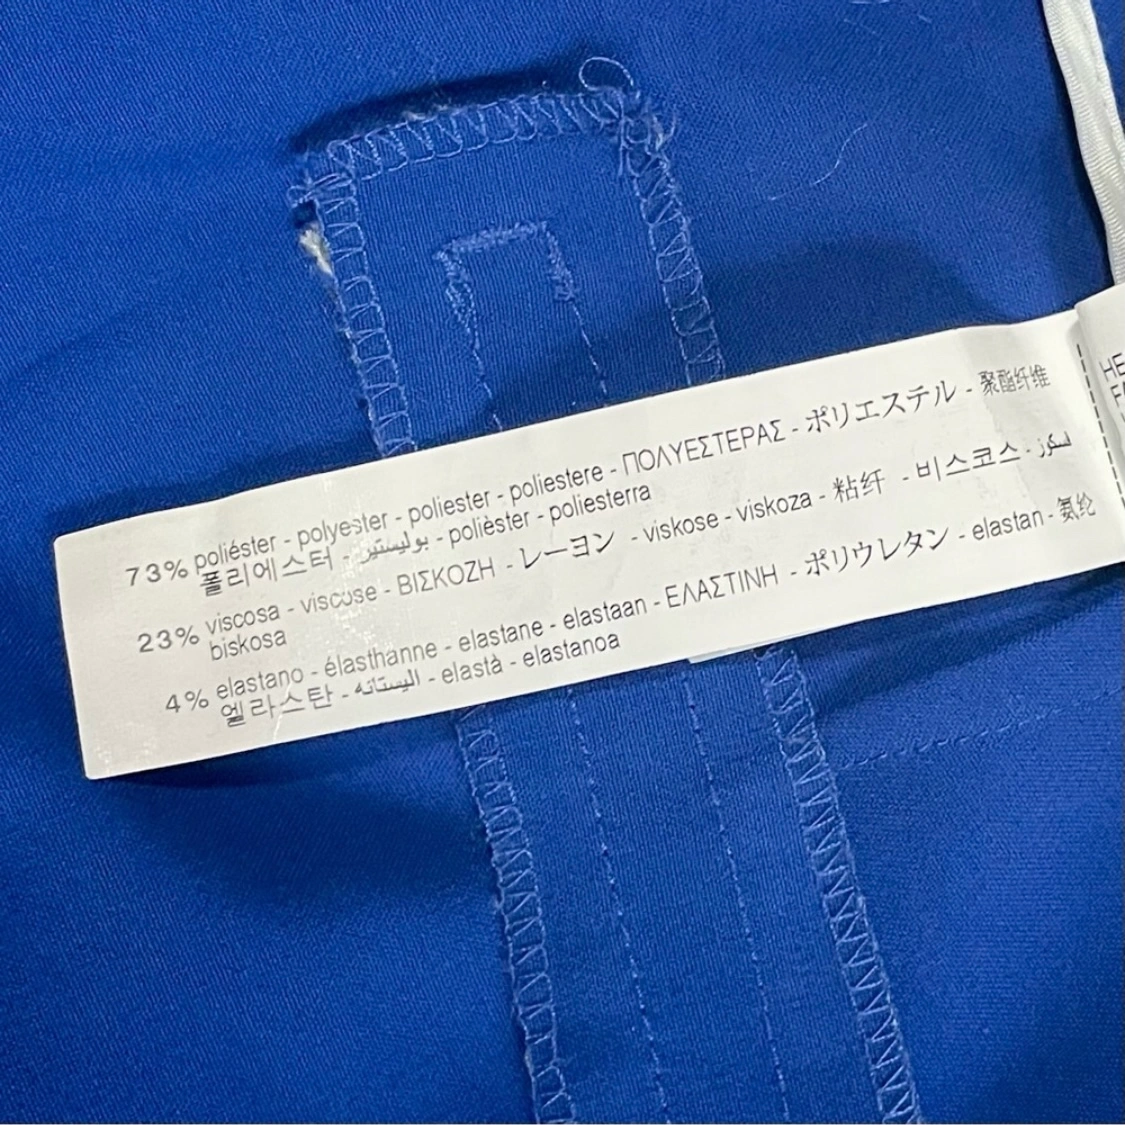 73% poliéster - polyester - poliester - poliestere - ΠΟΛΥΕΣΤΕΡΑΣ - ポリエステル - 聚酯纤维
폴리에스터 - بوليستير - polièster - poliesterra
23% viscosa - viscose - ΒΙΣΚΟΖΗ - レーヨン - viskose - viskoza - 粘纤 - 비스코스 -
biskosa
4% elastano - élasthanne - elastane - elastaan - ΕΛΑΣΤΙΝΗ - ポリウレタン - elastan - 氨纶
엘라스탄 - اليستانه - elastà - elastanoa
HE